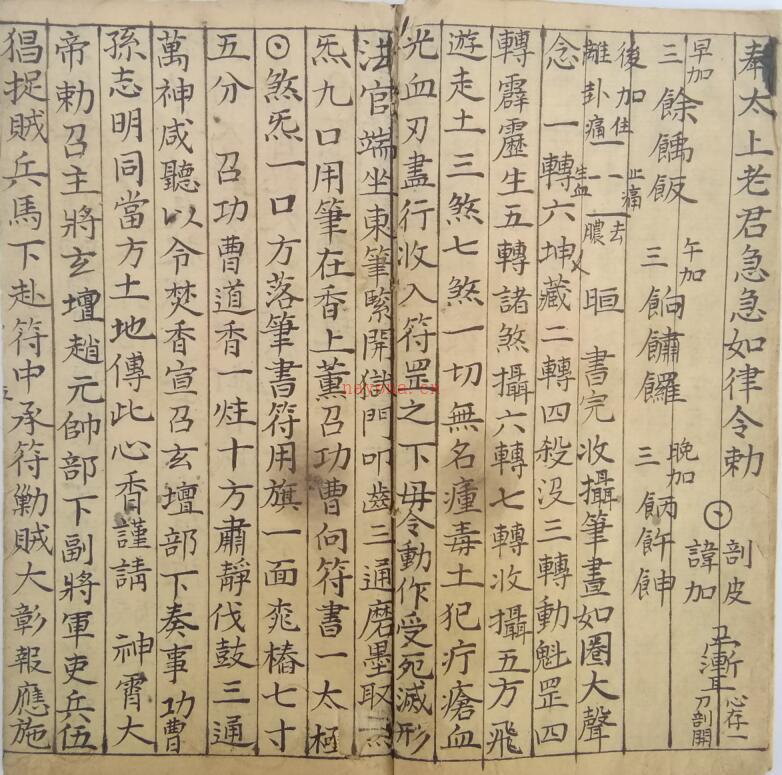 奉太上老君急急如律令勅
剖皮
諱加
漸耳
心存一
刀剖開
早加
三
餘
午加
三餉
晚加
三
後加住
止痛
離卦痛
去
膿
生血
晅 書完收攝筆畫如圈大聲
念 一轉六坤藏二轉四殺没三轉動魁罡四
轉霹靂生五轉諸煞攝六轉七轉收攝五方飛
遊走土三煞七煞一切無名瘇毒土犯疔瘡血
光血刃盡行收入符罡之下毋令動作受死滅形
法官端坐東筆緊開獄門叩齒三通磨墨取
炁九口用筆在香上薰召功曹向符書一太極
煞炁一口方落筆書符用旗一面 樁七寸
五分 召功曹道香一炷十方肅靜伐鼓三通
萬神咸聽以令焚香宣召玄壇部下奏事功曹
孫志明同當方土地傳此心香謹請 神霄大
帝勅召主將玄壇趙元帥部下副將軍吏兵伍
猖捉賊兵馬下赴符中承符勦賊大彰報應施
nayona.cn